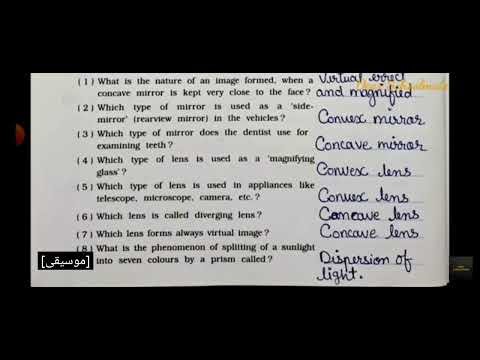 (1) What is the nature of an image formed, when a Virtual erect
concave mirror is kept very close to the face? and magnified
(2) Which type of mirror is used as a 'side-
mirror' (rearview mirror) in the vehicles? Convex mirror
(3) Which type of mirror does the dentist use for
examining teeth? Concave mirror
(4) Which type of lens is used as a 'magnifying
glass'? Convex lens
(5) Which type of lens is used in appliances like
telescope, microscope, camera, etc.? Convex lens
(6) Which lens is called diverging lens? Concave lens
(7) Which lens forms always virtual image? Concave lens
(8) What is the phenomenon of splitting of a sunlight
[موسیقی] into seven colours by a prism called? Dispersion of
light.